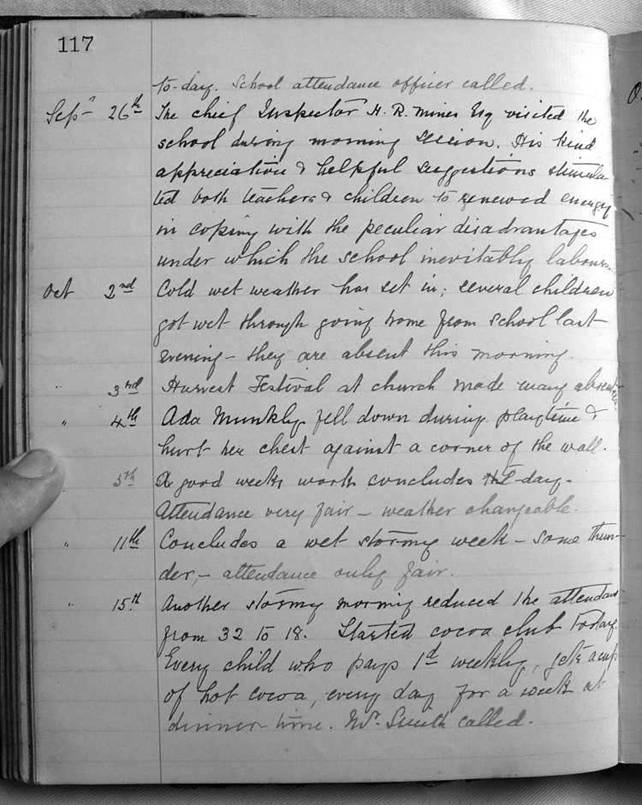 117
to-day. School attendance officer called.
Sep" 26th The chief Inspector H. R. Mines Esq visited the
school during morning session. His kind
appreciation & helpful suggestions stimula
ted both teachers & children to renewed energy
in coping with the peculiar disadvantages
under which the school inevitably labours.
Oct 2nd Cold wet weather has set in; several children
got wet through going home from school last
evening - they are absent this morning.
" 3rd Harvest Festival at church made many absentees
" 4th Ada Munkly fell down during playtime &
hurt her chest against a corner of the wall.
5th A good weeks work concludes to-day.
Attendance very fair - weather changeable.
" 11th Concludes a wet stormy week - some thun-
der, - attendance only fair.
" 15th Another stormy morning reduced the attendance
from 32 to 18. Started cocoa club today
Every child who pays 1d weekly, gets a cup
of hot cocoa, every day for a week at
dinner-time. Mr. Smith called.